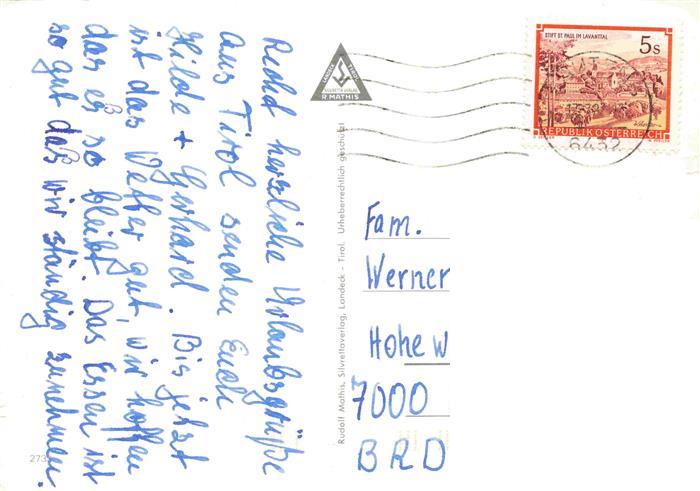 Recht herzliche Urlaubsgrüße
aus Tirol senden Euch
Hilde + Gerhard. Bis jetzt
ist das Wetter gut, wir hoffen
das es so bleibt. Das Essen ist
so gut daß wir ständig zunehmen.
2733
LANDECK TIROL
SILVRETTA VERLAG
R. MATHIS
Rudolf Mathis, Silvrettaverlag, Landeck - Tirol. Urheberrechtlich geschützt
STIFT ST. PAUL IM LAVANTTAL
5s
REPUBLIK ÖSTERREICH
6432
Fam.
Werner
Hohe w
7000
BRD